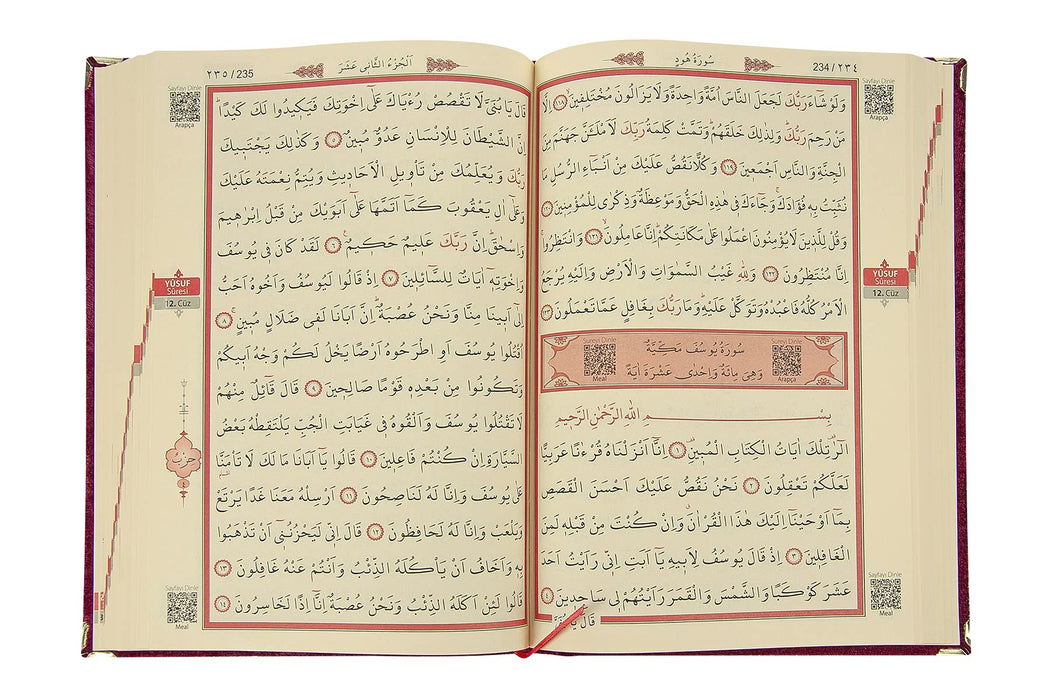 سُورَةُ هُودٍ
234 / ٢٣٤
وَلَوْ شَٓاءَ رَبُّكَ لَجَعَلَ النَّاسَ اُمَّةً وَاحِدَةً وَلَا يَزَالُونَ مُخْتَلِفٖينَۙ ﴿١١٨﴾ اِلَّا
مَنْ رَحِمَ رَبُّكَۜ وَلِذٰلِكَ خَلَقَهُمْۜ وَتَمَّتْ كَلِمَةُ رَبِّكَ لَاَمْلَـَٔنَّ جَهَنَّمَ مِنَ
الْجِنَّةِ وَالنَّاسِ اَجْمَعٖينَ ﴿١١٩﴾ وَكُلًّا نَقُصُّ عَلَيْكَ مِنْ اَنْبَٓاءِ الرُّسُلِ مَا
نُثَبِّتُ بِهٖ فُؤٰادَكَۚ وَجَٓاءَكَ فٖي هٰذِهِ الْحَقُّ وَمَوْعِظَةٌ وَذِكْرٰى لِلْمُؤْمِنٖينَ ﴿١٢٠﴾
وَقُلْ لِلَّذٖينَ لَا يُؤْمِنُونَ اعْمَلُوا عَلٰى مَكَانَتِكُمْۜ اِنَّا عَامِلُونَۙ ﴿١٢١﴾ وَانْتَظِرُواۚ
اِنَّا مُنْتَظِرُونَ ﴿١٢٢﴾ وَلِلّٰهِ غَيْبُ السَّمٰوَاتِ وَالْاَرْضِ وَاِلَيْهِ يُرْجَعُ
الْاَمْرُ كُلُّهُ فَاعْبُدْهُ وَتَوَكَّلْ عَلَيْهِۜ وَمَا رَبُّكَ بِغَافِلٍ عَمَّا تَعْمَلُونَ ﴿١٢٣﴾
سُورَةُ يُوسُفَ مَكِّيَّةٌ
وَهِيَ مِائَةٌ وَاِحْدٰى عَشْرَةَ اٰيَةً
Sureyi Dinle
Arapça
Sureyi Dinle
Meal
بِسْمِ اللّٰهِ الرَّحْمٰنِ الرَّحٖيمِ
الٓرٰ۠ تِلْكَ اٰيَاتُ الْكِتَابِ الْمُبٖينِ۠ ﴿١﴾ اِنَّٓا اَنْزَلْنَاهُ قُرْءٰنًا عَرَبِيًّا
لَعَلَّكُمْ تَعْقِلُونَ ﴿٢﴾ نَحْنُ نَقُصُّ عَلَيْكَ اَحْسَنَ الْقَصَصِ
بِمَٓا اَوْحَيْنَٓا اِلَيْكَ هٰذَا الْقُرْاٰنَۗ وَاِنْ كُنْتَ مِنْ قَبْلِهٖ لَمِنَ
الْغَافِلٖينَ ﴿٣﴾ اِذْ قَالَ يُوسُفُ لِاَبٖيهِ يَٓا اَبَتِ اِنّٖي رَاَيْتُ اَحَدَ
عَشَرَ كَوْكَبًا وَالشَّمْسَ وَالْقَمَرَ رَاَيْتُهُمْ لٖي سَاجِدٖينَ ﴿٤﴾
قَالَ يَا بُنَيَّ
Sayfayı Dinle
Arapça
YÛSUF
Sûresi
12. Cüz
Sayfayı Dinle
Meal
اَلْجُزْءُ الثَّانٖي عَشَرَ
٢٣٥ / 235
قَالَ يَا بُنَيَّ لَا تَقْصُصْ رُءْيَاكَ عَلٰٓى اِخْوَتِكَ فَيَكٖيدُوا لَكَ كَيْدًاۜ
اِنَّ الشَّيْطَانَ لِلْاِنْسَانِ عَدُوٌّ مُبٖينٌ ﴿٥﴾ وَكَذٰلِكَ يَجْتَبٖيكَ
رَبُّكَ وَيُعَلِّمُكَ مِنْ تَأْوٖيلِ الْاَحَادٖيثِ وَيُتِمُّ نِعْمَتَهُ عَلَيْكَ
وَعَلٰٓى اٰلِ يَعْقُوبَ كَمَٓا اَتَمَّهَا عَلٰٓى اَبَوَيْكَ مِنْ قَبْلُ اِبْرٰهٖيمَ
وَاِسْحٰقَۜ اِنَّ رَبَّكَ عَلٖيمٌ حَكٖيمٌ۟ ﴿٦﴾ لَقَدْ كَانَ فٖي يُوسُفَ
وَاِخْوَتِهٖٓ اٰيَاتٌ لِلسَّٓائِلٖينَ ﴿٧﴾ اِذْ قَالُوا لَيُوسُفُ وَاَخُوهُ اَحَبُّ
اِلٰٓى اَبٖينَا مِنَّا وَنَحْنُ عُصْبَةٌۜ اِنَّ اَبَانَا لَفٖي ضَلَالٍ مُبٖينٍۚ ﴿٨﴾
اُقْتُلُوا يُوسُفَ اَوِ اطْرَحُوهُ اَرْضًا يَخْلُ لَكُمْ وَجْهُ اَبٖيكُمْ
وَتَكُونُوا مِنْ بَعْدِهٖ قَوْمًا صَالِحٖينَ ﴿٩﴾ قَالَ قَٓائِلٌ مِنْهُمْ
لَا تَقْتُلُوا يُوسُفَ وَاَلْقُوهُ فٖي غَيَابَتِ الْجُبِّ يَلْتَقِطْهُ بَعْضُ
السَّيَّارَةِ اِنْ كُنْتُمْ فَاعِلٖينَ ﴿١٠﴾ قَالُوا يَٓا اَبَانَا مَا لَكَ لَا تَأْمَنَّا
عَلٰى يُوسُفَ وَاِنَّا لَهُ لَنَاصِحُونَ ﴿١١﴾ اَرْسِلْهُ مَعَنَا غَدًا يَرْتَعْ
وَيَلْعَبْ وَاِنَّا لَهُ لَحَافِظُونَ ﴿١٢﴾ قَالَ اِنّٖي لَيَحْزُنُنٖٓي اَنْ تَذْهَبُوا
بِهٖ وَاَخَافُ اَنْ يَأْكُلَهُ الذِّئْبُ وَاَنْتُمْ عَنْهُ غَافِلُونَ ﴿١٣﴾
قَالُوا لَئِنْ اَكَلَهُ الذِّئْبُ وَنَحْنُ عُصْبَةٌ اِنَّٓا اِذًا لَخَاسِرُونَ ﴿١٤﴾
Sayfayı Dinle
Arapça
YÛSUF
Sûresi
12. Cüz
حِزْبٌ
٤
Sayfayı Dinle
Meal